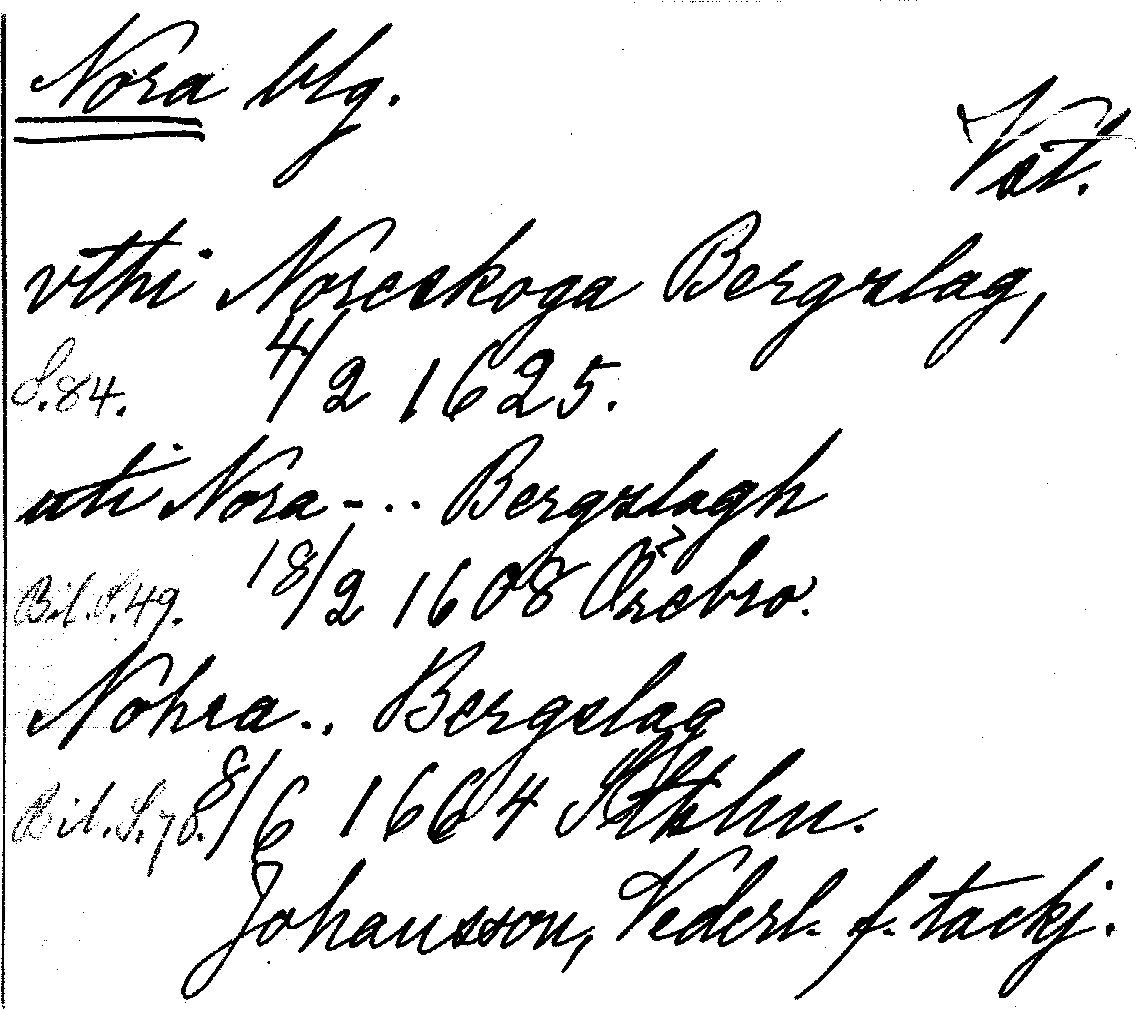 Nora blg.
Vst.
vthi Noreskoga Bergzlag,
S. 84. 4/2 1625.
uti Nora - .. Bergzlagh
Bil. S. 49. 18/2 1608 Örebro.
Nohra .. Bergslag
Bil. S. 78. 8/6 1664 Stkhlm.
Johansson, Nederl. f. tackj.